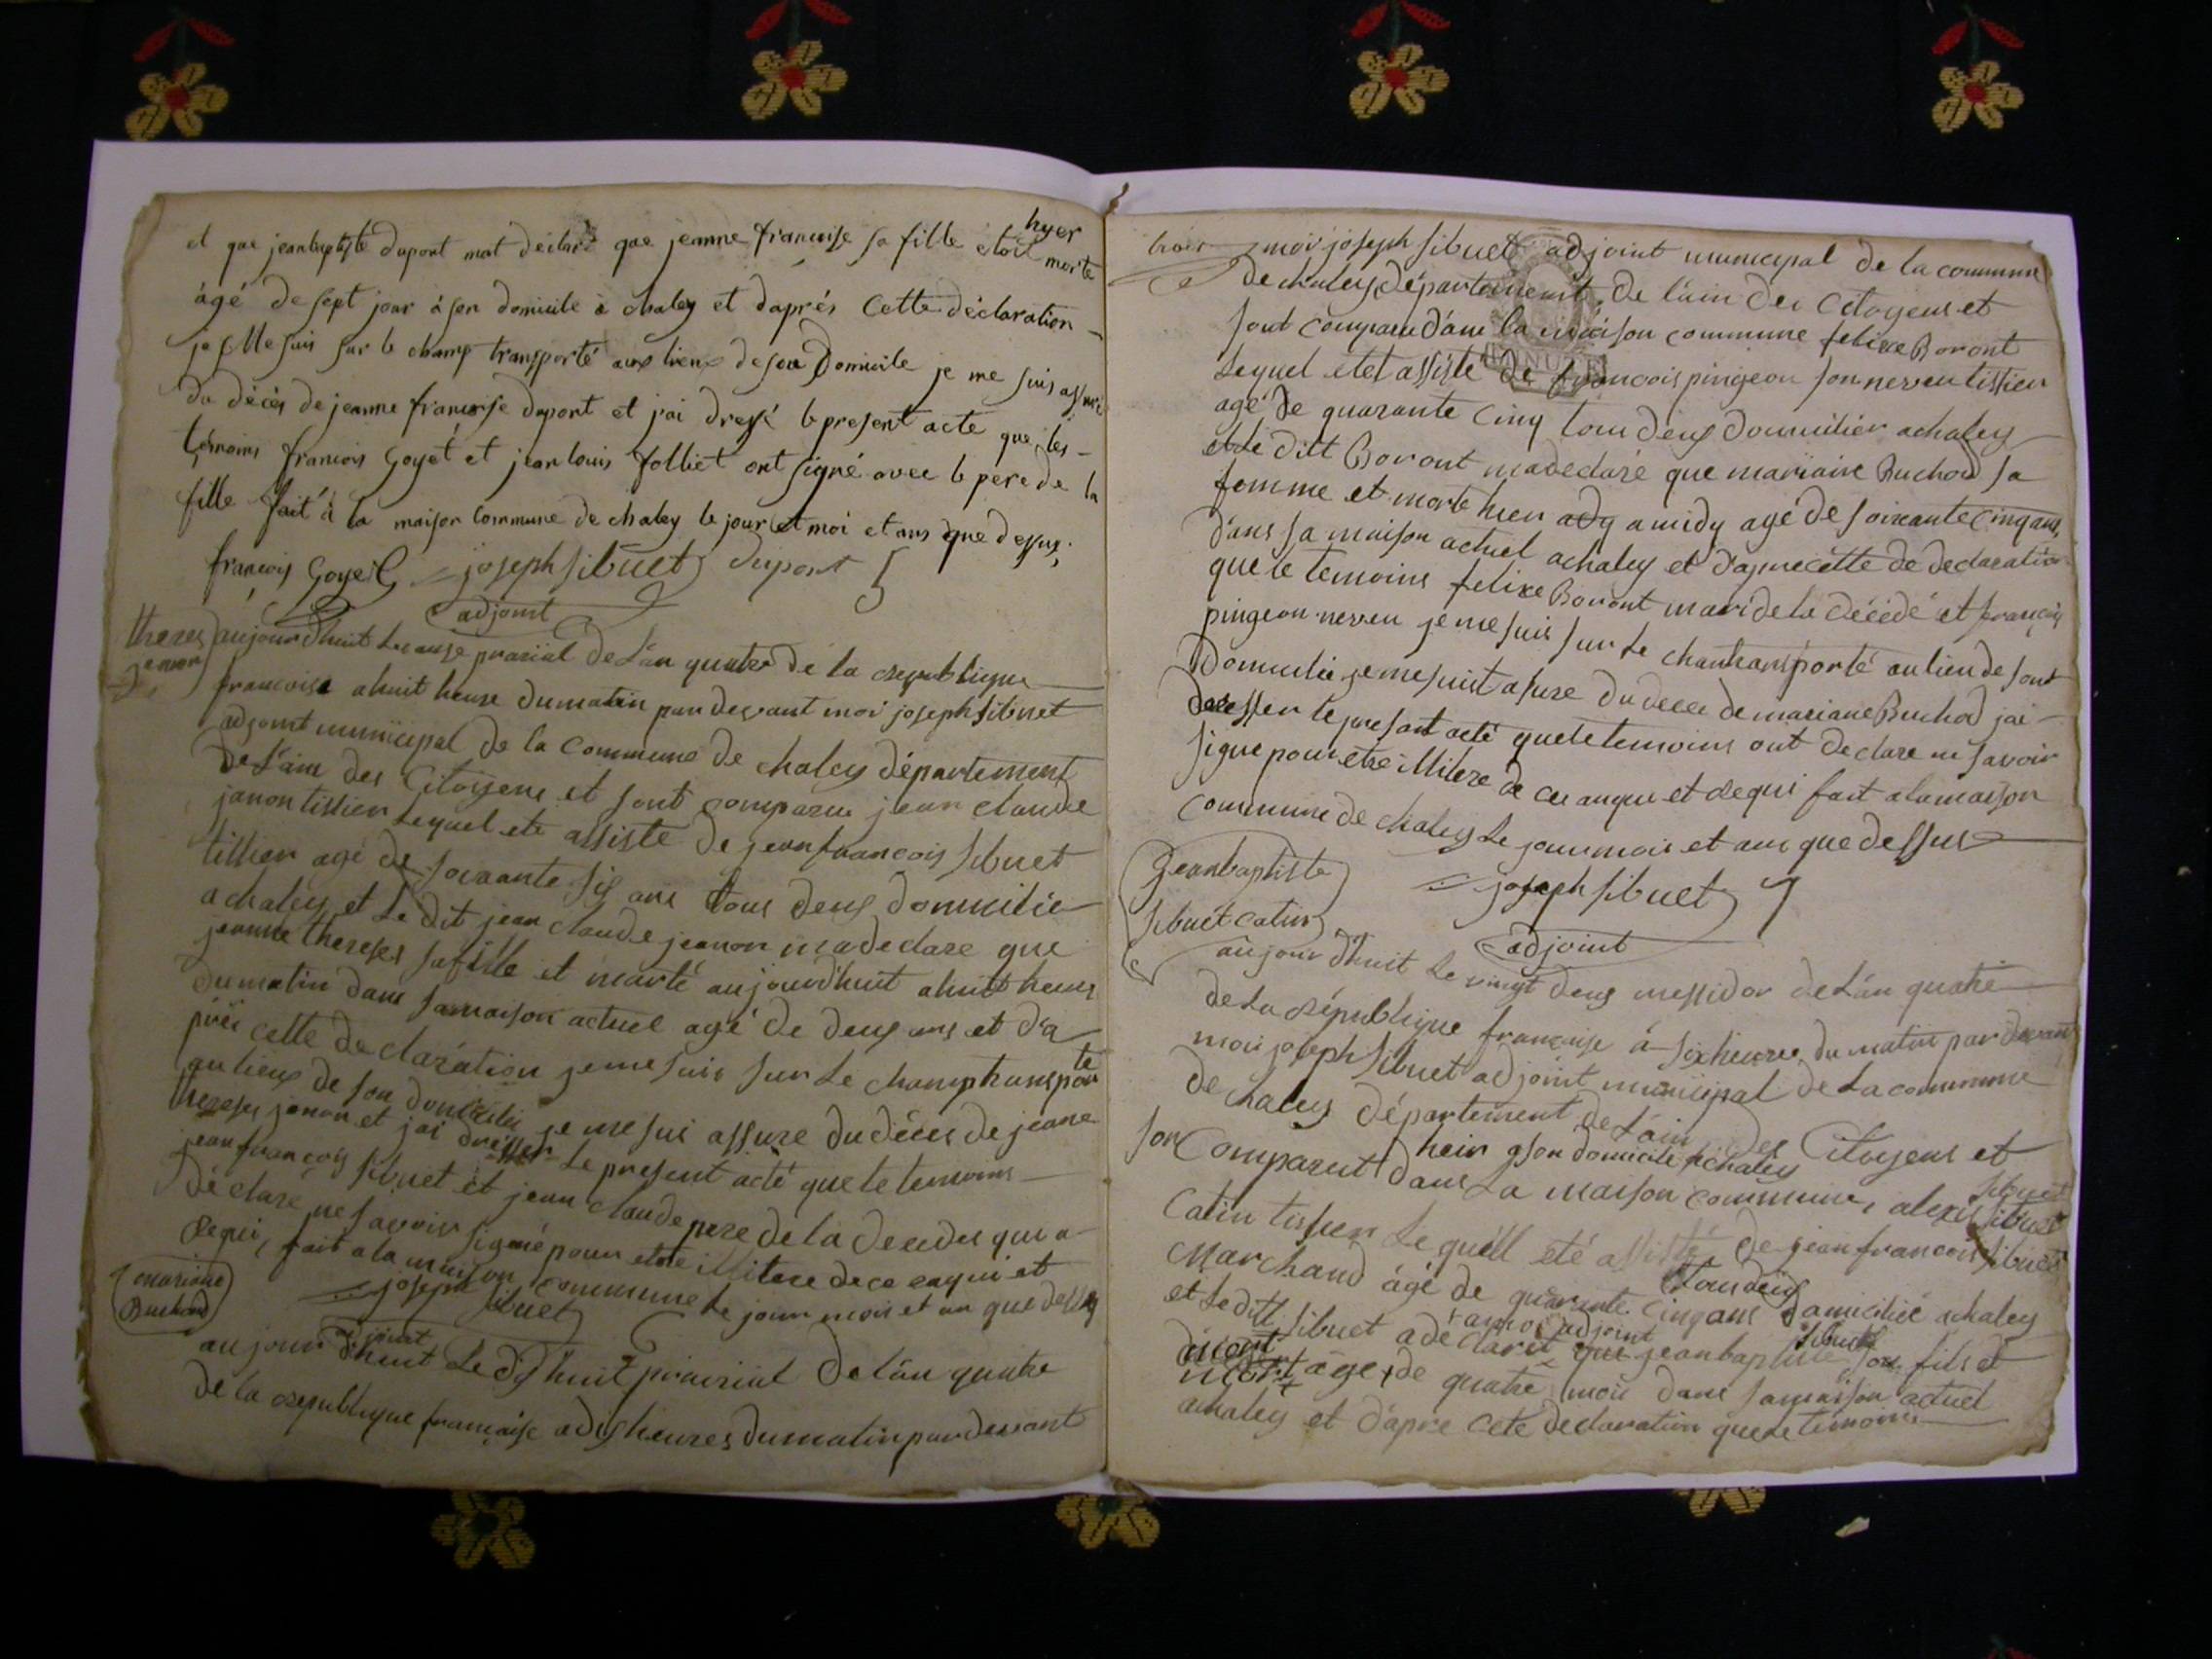 et que jeanbaptiste dupont mat déclaré que jeanne francoise sa fille etoit hyer morte
àgé de sept jour à son domicile à chaley et daprés cette déclaration
je Me suis sur le champ transporté aux lieux de son Domicile je me suis assuré
du décès de jeanne francoise dupont et j'ai dressé le present acte que les
témoins francois Goyet et jean louis folliet ont signé avec le pere de la
fille fait à la maison Commune de chaley le jour et moi et ans que dessus.
françois Goyet joseph sibuet dupont
adjoint
thereses
jeanon
aujourdhuit le onze prarial de L'an quatre de la republique
francoise a huit heure du matin par devant moi joseph sibuet
adjoint municipal de la Commune de chaley département
de L'ain des Citoyens et sont comparu jean claude
janon tissier Lequel ete assiste de jean francois sibuet
tissier agé de soixante six ans tous deux domicilie
a chaley et Le dit jean claude jeanon ma declare que
jeanne thereses sa fille et marté aujourdhuit a huit heures
du matin dans sa maison actuel agé de deux ans et d'a
près cette declaration je me suis sur Le champ transporte
au lieux de son domicilie je me suis assure du décès de jeane
thereses janon et jai dresser Le present acté que le temoins
jean françois sibuet et jean claude pere de la decedes qui a
déclaré ne savoir signé pour etre illitere de ce enqui et
dequi, fait a la maison commune Le jour mois et an que dessus
joseph sibuet
adjoint
mariane
Buchod
aujour dhuit Le dix huit prairial de L'an quatre
de la republique française a dix heures du matin par devant
moi joseph sibuet adjoint municipal de la commune
de chaley département de l'ain des Citoyens et
sont comparu dans la maison commune felixe Boront
Lequel etet assisté de francois pingeon son neveu tissier
agé de quarante cinq tous deux domicilier a chaley
et le ditt Boront ma declaré que mariane Buchod sa
femme et morte hier ady a midy agé de soixante cinq ans
dans sa maison actuel a chaley et d'apres cette de declaration
que le temoins felixe Boront mari de la décédé et françois
pingeon neveu je me suis sur Le chantransporté au lieu de sont
Domicilié je me suist assure du decés de mariane Buchod jai
deresser le presant acté que le temoins ont declare ne savoir
signe pour etre illitere de ce anque et dequi fait a la maison
commune de chaley Le jour mois et ans que dessus
joseph sibuet
adjoint
Jeanbaptiste
sibuet catin
aujourdhuit Le vingt deux messidor de L'an quatre
de La république française à six heure du matin par devant
moi joseph sibuet adjoint municipal de La commune
de chaley département de L'ain des Citoyens et
hier a son domicile a chaley
son comparut dans La maison commune, alexis sibuet
Catin tissier Le quell eté assisté de jean francois sibuet
Marchand âgé de quarante cinq ans tous deux domicilié a chaley
et Le ditt sibuet a déclaré a moi adjoint que jean baptiste sibuet son fils et
mort âge de quatre mois dans sa maison actuel
a chaley et d'apre cete declaration que le témoins